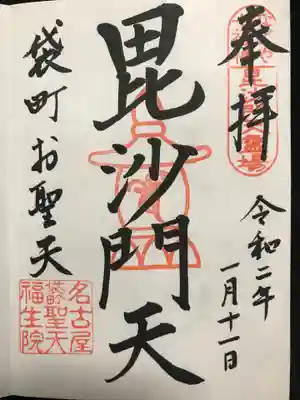 奉拝
令和二年
一月十一日
毘沙門天
袋町お聖天
名古屋
袋町聖天
福生院